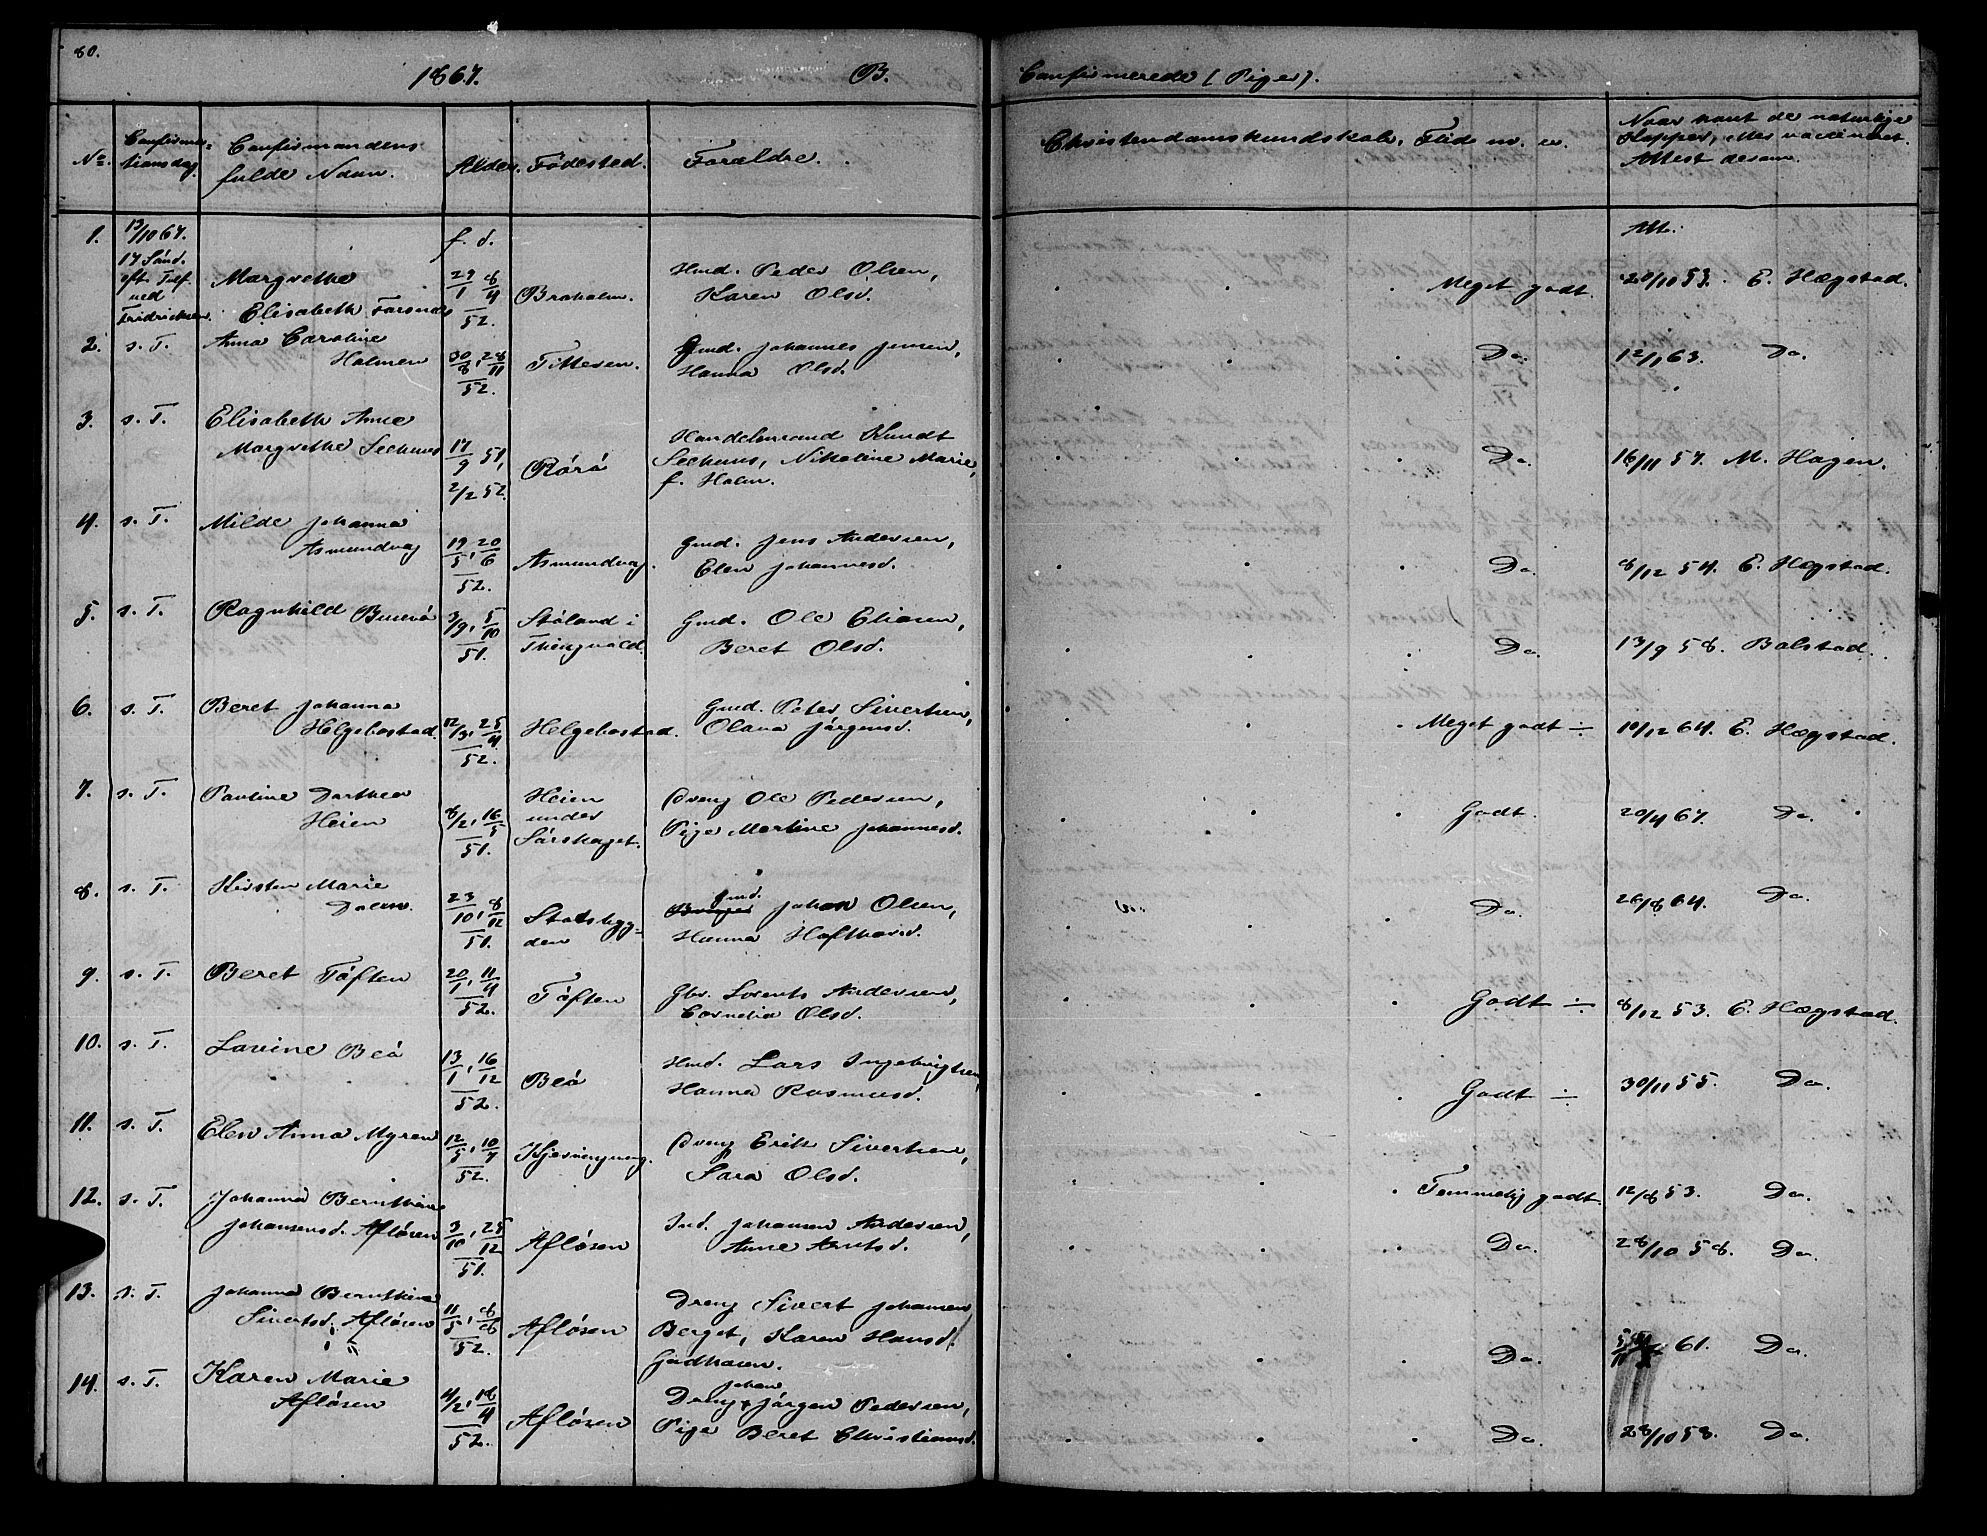 80.
1867. B. Confirmerede (Piger).
No. Confirmationsdag. Confirmandens fulde Navn. Alder. Fødested. Forældre. Christendomskundskab, Flid m. v. Naar havt de naturlige Kopper, eller vaccineret. Attest derom.
1. 13/10 67. f. d. Att.
17 Sønd. eft. Tref. ved Fridrichsen. Margrethe Elisabeth 29/1 8/4 52. Braholm. Hmd. Peder Olsen, Karen Olsd. Meget godt. 20/10 53. E. Hægstad.
2. s. T. Anna Caroline Holmen 30/8, 28/11 52. Titteren. Gmd. Johannes Jensen, Hanna Olsd. Do. 12/1 63. Do.
3. s. T. Elisabeth Anne Margrethe 17/9 51, 2/2 52. Rørö Handelsmand Knudt Nikoline Marie, f. Holm. Do. 16/11 57. M. Hagen.
4. s. T. Milde Johanna Asmundvag 19/5, 20/6 52. Asmundvag. Gmd. Jens Andersen, Elen Johannesd. Do. 8/12 54. E. Hægstad.
5. s. T. Ragnhild 3/9, 5/10 51. Støland i Thingvold. Gmd. Ole Eliasen, Beret Olsd. Do. 13/9 58. Bolstad.
6. s. T. Beret Johanna Helgebostad. 12/3, 25/4 52. Helgebostad. Gmd. Peter Sivertsen, Olava Jørgensd. Meget godt ÷ 10/12 64. E. Hægstad.
7. s. T. Pauline Dorthea Heien 8/2, 16/5 51. Heien under Sørshaget. Dreng Ole Pedersen, Pige Martine Johannesd. Godt. 20/4 67. Do.
8. s. T. Kirsten Marie Dalen. 23/10, 8/12 51. Stadsbygden Gmd. Johan Olsen, Hanna Do. 26/8 64. Do.
9. s. T. Beret Tøften 20/1, 11/4 52. Tøften Gbr. Lorents Andersen, Cornelia Olsd. Godt ÷ 8/12 53. E. Hægstad.
10. s. T. Lavine Beö 13/1, 16/12 52. Beö Hmd. Lars Ingebrigtsen, Hanna Rasmusd. Godt ÷ 30/11 55. Do.
11. s. T. Elen Anna Myren 12/5, 10/7 52. Kjørsvingvaag. Dreng Erik Sivertsen, Sara Olsd. Temmelig godt. 12/8 53. Do.
12. s. T. Johanna Bernthine Johansensd. Afløsen 3/10, 25/12 51. Afløsen Ind. Johansen Andersen, Anne Arntsd. Do. 28/10 58. Do.
13. s. T. Johanna Bernthine Sivertsd. Afløsen 11/5, 8/8 52. Afløsen Dreng Sivert Johansen Berget, Karen Hansd. Godhavn. Do. 61. Do.
14. s. T. Karen Marie Afløsen 4/2, 18/4 52. Afløsen Dreng Johan Jørgen Pedersen, Pige Beret Christiansd. Do. 28/10 58. Do.